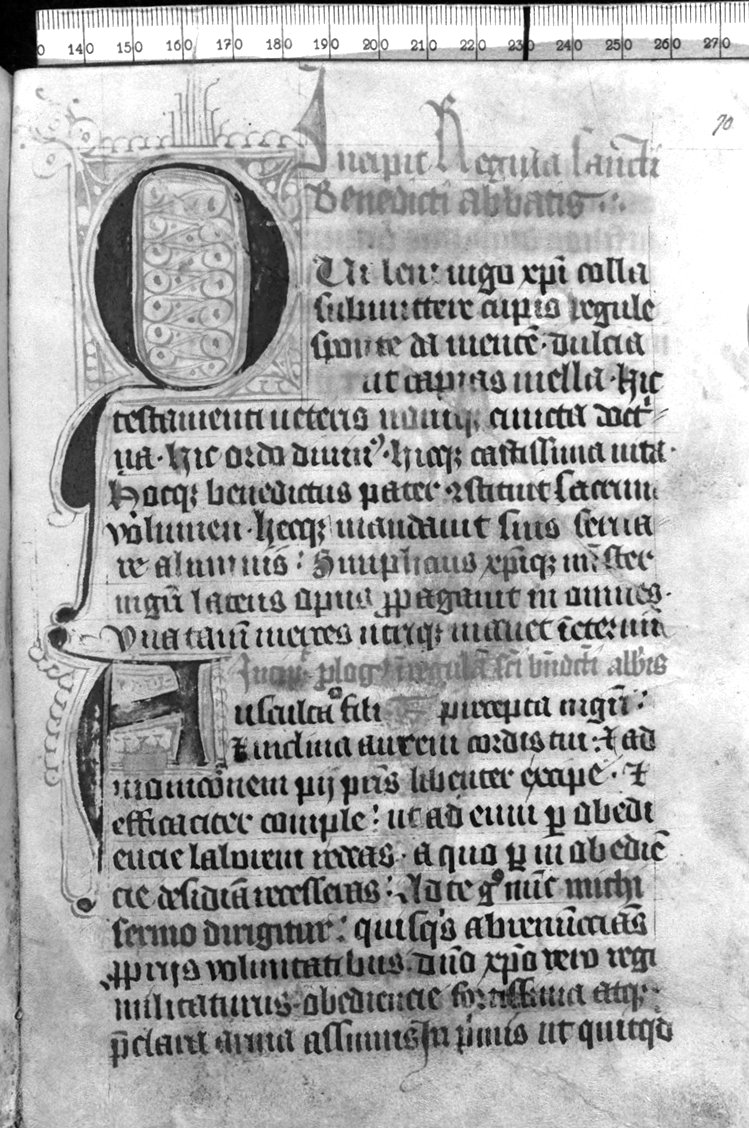 0 140 150 160 170 180 190 200 210 220 230 240 250 260 270
70
Incipit Regula sancti
Benedicti abbatis
QUi leni iugo xp̄i colla
submittere cupis regule
sponte da mentē · dulcia
ut capias mella · hic
testamenti ueteris cuncta doct
na · hic ordo diuin⁹ · hicqꝫ castissima uita ·
Hocqꝫ benedictus pater ꝯstituit sacrum
volumen · hecqꝫ mandauit suis serua
re alumnis : Simplicius xp̄iqꝫ minister
mgr̄i latens opus ꝓpagauit in omnes ·
Vna tam̄ merces utriqꝫ manet ī eternum
Incip̄ plog⁹ ī regulā sc̄i bn̄dicti abb̄is
Ausculta o fili precepta mgr̄i :
⁊ inclina aurem cordis tui · ⁊ ad
monicōnem pij pr̄is libenter excipe · ⁊
efficaciter comple : ut ad eum ꝑ obedi
encie laborem redeas · a quo ꝑ in obediē
cie desidiā recesseras : Ad te gͦ nūc michi
sermo dirigitur : quisqͥs abrenūcians
ꝓprijs voluntatibus · dn̄o xp̄o vero regi
militaturus · obediencie fortissima atqꝫ
p̄clara arma assumis In pͥmis ut quicqͥd